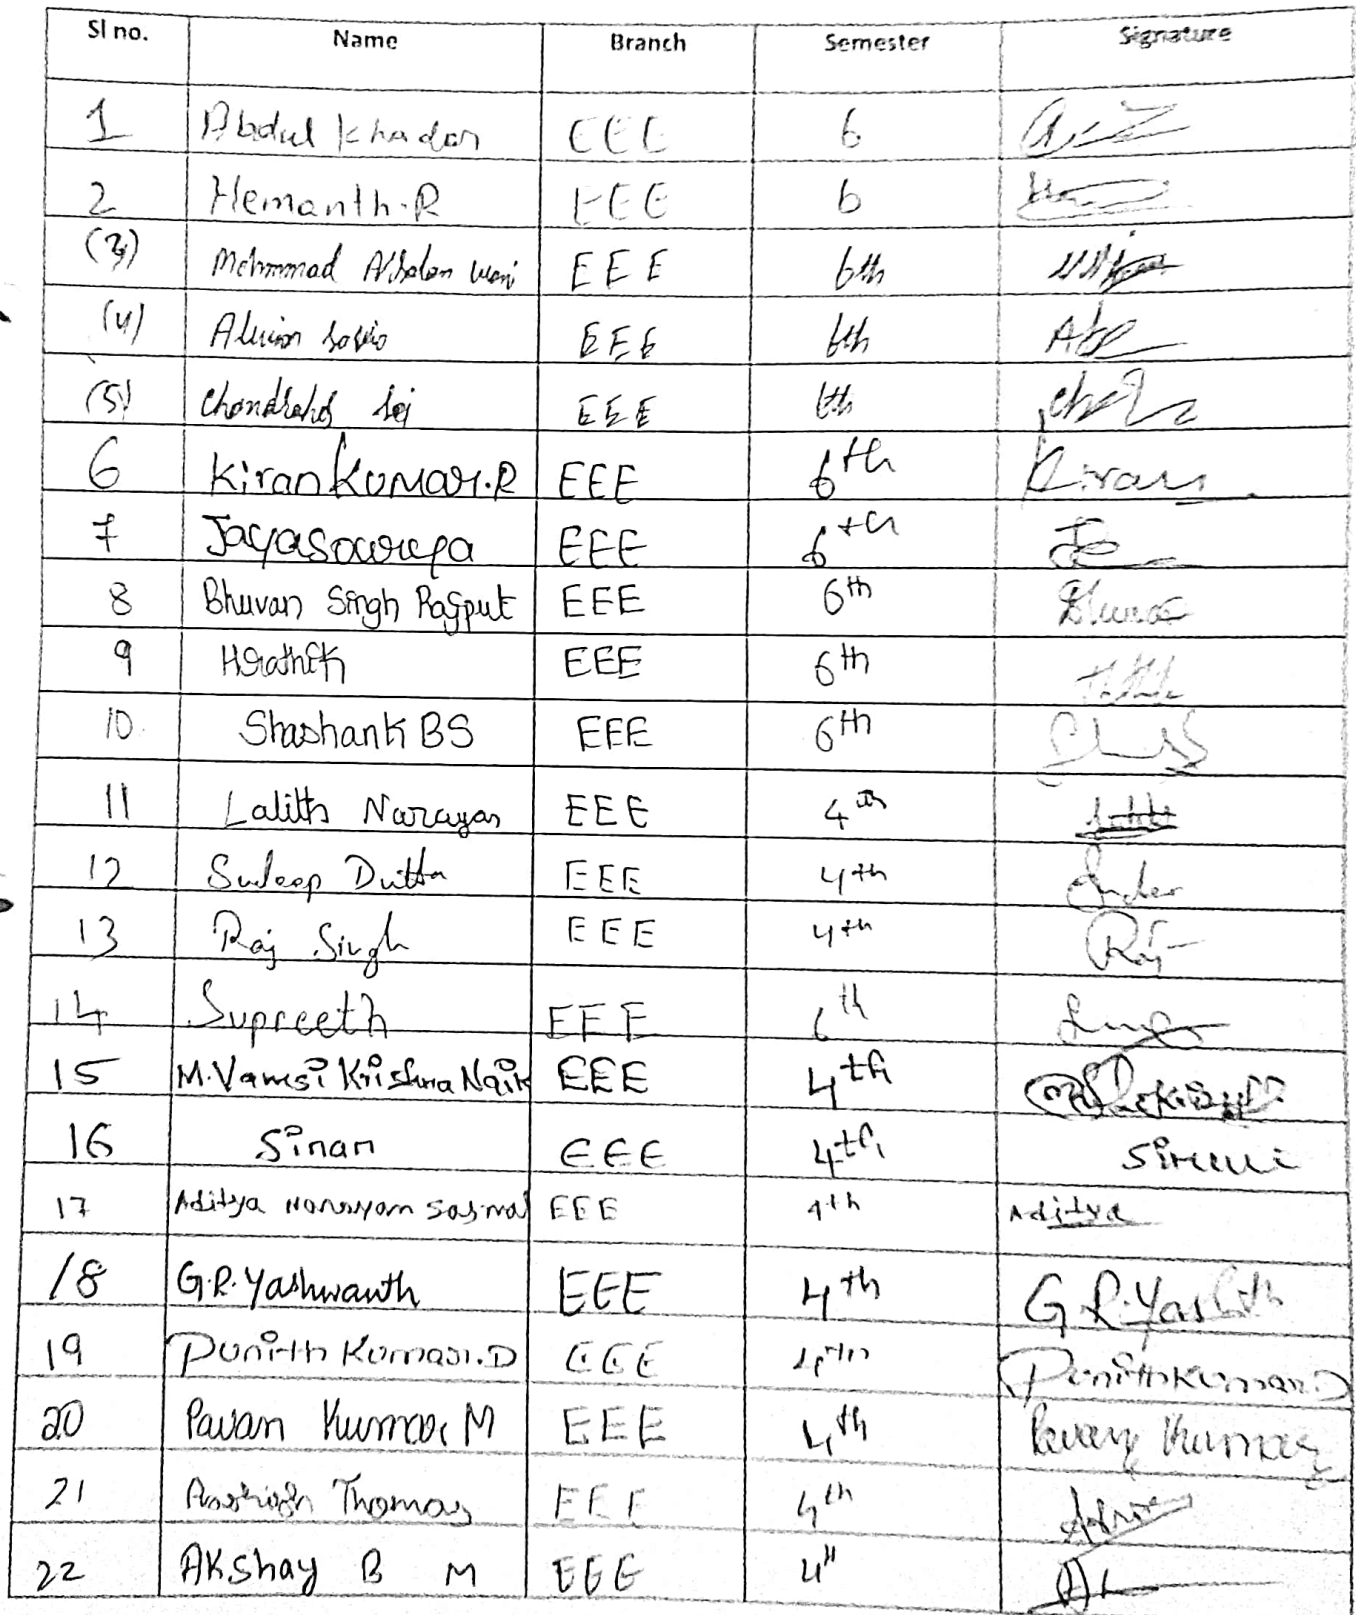 Sl no. Name Branch Semester Signature
1 Abdul Khadar EEE 6
2 Hemanth.R EEE 6
(3) Mohmmad Wani EEE 6th
(4) EEE 6th
(5) Sai EEE 6th
6 Kiran Kumar.R EEE 6th Kiran
7 Jayasouraya EEE 6th
8 Bhuvan Singh Rajput EEE 6th
9 Hrathik EEE 6th
10 Shashank BS EEE 6th
11 Lalith Narayan EEE 4th
12 Sudeep Dutta EEE 4th
13 Raj Singh EEE 4th Raj
14 Supreeth EEE 6th
15 M.Vamsi Krishna Naik EEE 4th
16 Sinan EEE 4th
17 Aditya Narayan Sasmal EEE 4th Aditya
18 G.R.Yashwanth EEE 4th
19 Punith Kumar.D EEE 4th Punithkumar.D
20 Pavan Kumar M EEE 4th Pavan Kumar
21 Thomas EEE 4th
22 Akshay B M EEE 4th